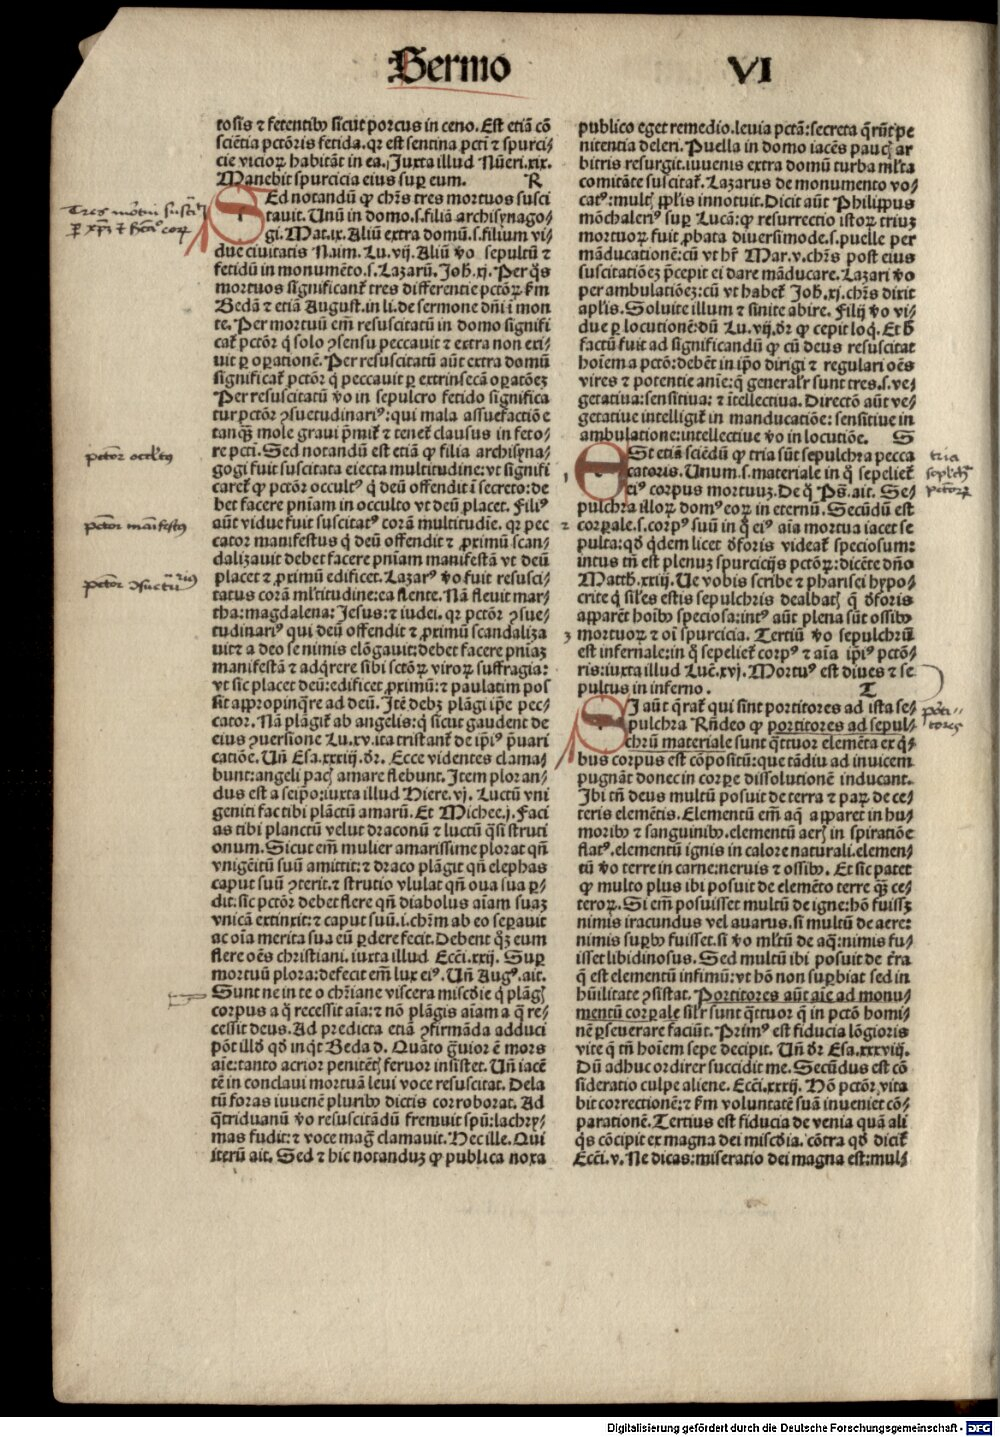 Sermo VI
tosis ⁊ fetentibꝰ sicut porcus in ceno. Est etiā cō
sciētia pctōris fetida. qꝛ est sentina pcti ⁊ spurci⸗
cie vicioꝝ habitāt in ea. Juxta illud Nūeri. xix.
Manebit spurcicia eius suꝑ eum. R
SEd notandū ꝙ chr̄s tres mortuos susci
tauit. Unū in domo. s. filiā archisynago⸗
gi. Mat. ix. Aliū extra domū. s. filium vi⸗
due ciuitatis Naim. Lu. vij. Aliū v̄o sepultū ⁊
fetidū in monumēto. s. Lazarū. Joh̄. xj. Per q̄s
mortuos significant᷑ tres differentie pctōꝝ. ẜm
Bedā ⁊ etiā August. in li. de sermone dn̄i ī mon
te. Per mortuū em̄ resuscitatū in domo signifi
cat᷑ pctōr q̇ solo ꝯsensu peccauit ⁊ extra non exi⸗
uit ꝑ oꝑationē. Per resuscitatū aūt extra domū
significat᷑ pctōr q̇ peccauit ꝑ extrinsecā oꝑatōeꝫ
Per resuscitatū v̄o in sepulcro fetido significa
tur pctōr ꝯsuetudinariꝰ: qui mala assuefactiōe
tanqꝫ mole graui p̄mit᷑ ⁊ tenet᷑ clausus in feto⸗
re pcti. Sed notandū est etiā ꝙ filia archisyna⸗
gogi fuit suscitata eiecta multitudine: vt signifi
caret᷑ ꝙ pctōr occultꝰ q̇ deū offendit ī secreto: de
bet facere pn̄iam in occulto vt deū placet. Filiꝰ
aūt vidue fuit suscitatꝰ corā multitudie. qꝛ pec
cator manifestus q̇ deū offendit ⁊ ꝓximū scan⸗
dalizauit debet facere pn̄iam manifestā vt deū
placet ⁊ ꝓximū edificet. Lazarꝰ v̄o fuit resusci⸗
tatus corā ml̓titudine: ea flente. Nā fleuit mar⸗
tha: magdalena: Jesus: ⁊ iudei. qꝛ pctōr ꝯsue⸗
tudinariꝰ qui deū offendit ⁊ ꝓximū scandaliza
uit ⁊ a deo se nimis elōgauit: debet facere pn̄iaꝫ
manifestā ⁊ adq̇rere sibi sctōꝝ viroꝝ suffragia:
vt sic placet deū: edificet ꝓximū: ⁊ paulatim pos
sit appropinq̄re ad deū. Itē debꝫ plāgi ip̄e pec⸗
cator. Nā plāgit᷑ ab angelis: q̇ sicut gaudent de
eius ꝯuersione Lu. xv. ita tristant᷑ de ip̄iꝰ p̄uari
catiōe. Un̄ Esa. xxxiij. dr̄. Ecce videntes clama⸗
bunt: angeli pacꝭ amare flebunt. Item ploran⸗
dus est a seip̄o: iuxta illud Hiere. vj. Luctū vni
geniti fac tibi plāctū amarū. Et Michee. j. Faci
as tibi planctū velut draconū ⁊ luctū q̄si struti
onum. Sicut em̄ mulier amarissime plorat qn̄
vnigēitū suū amittit: ⁊ draco plāgit qn̄ elephas
caput suū ꝯterit. ⁊ strutio vlulat qn̄ oua sua ꝑ⸗
dit: sic pctōr debet flere qn̄ diabolus aīam suaꝫ
vnicā extinxit: ⁊ caput suū. i. chr̄m ab eo seꝑauit
ac oīa merita sua eū ꝑdere fecit. Debent q̇ꝫ eum
flere oēs christiani. iuxta illud Ecci. xxij. Suꝑ
mortuū plora: defecit em̄ lux eiꝰ. Un̄ Augꝰ. ait.
Sunt ne in te o chr̄iane viscera miscd̓ie q̇ plāgꝭ
corpus a q̇ recessit aīa: ⁊ nō plāgis aīam a q̄ re⸗
cessit deus. Ad predicta etiā ꝯfirmāda adduci
pōt illd̓ qd̓ inq̇t Beda d. Quāto g̈uior ē mors
aīe: tanto acrior penitētꝭ feruor insistet. Un̄ iacē
tē in conclaui mortuā leui voce resuscitat. Dela
tū foras iuuenē pluribꝰ dictis corroborat. Ad
q̇triduanū v̄o resuscitādū fremuit spū: lachry⸗
mas fudit: ⁊ voce mag̈ clamauit. Hec ille. Qui
iterū ait. Sed ⁊ hic notanduꝫ ꝙ publica noxa
publico eget remedio. leuia pctā: secreta q̄rūt pe
nitentia deleri. Puella in domo iacēs paucꝭ ar
bitris resurgit. iuuenis extra domū turba ml̓ta
comitāte suscitat᷑. Lazarus de monumento vo⸗
catꝰ: multꝭ ppl̓is innotuit. Dicit aūt Philippus
mōchalerijꝰ suꝑ Lucā: ꝙ resurrectio istoꝝ triuꝫ
mortuoꝝ fuit ꝓbata diuersimode. s. puelle per
māducationē: cū vt hr̄ Mar. v. chr̄s post eius
suscitatiōeꝫ p̄cepit ei dare māducare. Lazari v̄o
per ambulatiōeꝫ: cū vt habet᷑ Joh̄. xj. chr̄s dixit
apl̓is. Soluite illum ⁊ sinite abire. Filij v̄o vi⸗
due ꝑ locutionē: dū Lu. vij. dr̄ ꝙ cepit loq̇. Et h̄
factū fuit ad significandū ꝙ cū deus resuscitat
hoīem a pctō: debēt in ip̄o dirigi ⁊ regulari oēs
vires ⁊ potentie anīe: q̄ general̓r sunt tres. s. ve⸗
getatiua: sensitiua: ⁊ ītellectiua. Directō aūt ve⸗
getatiue intelligit᷑ in manducatiōe: sensitiue in
ambulatione: intellectiue v̄o in locutiōe. S
ESt etiā sciēdū ꝙ tria sūt sepulchra pecca
catoris. Unum. s. materiale in q̇ sepeliet᷑
eiꝰ corpus mortuuꝫ. De q̇ Ps̄. ait. Se⸗
pulchra illoꝝ domꝰ eoꝝ in eternū. Secūdū est
corꝑale. s. corpꝰ suū in q̇ eiꝰ aīa mortua iacet se
pulta: qd̓ q̇dem licet d̓foris videat᷑ speciosum:
intus tn̄ est plenuꝫ spurcicijs pctōꝝ: dicēte dn̄o
Matth. xxiij. Ue vobis scribe ⁊ pharisei hypo⸗
crite q̇ sil̓es estis sepulchris dealbatꝭ q̄ d̓foris
apparēt hoībꝰ speciosa: intꝰ aūt plena sūt ossibꝰ
mortuoꝝ ⁊ oī spurcicia. Tertiū v̄o sepulchrū
est infernale: in q̇ sepeliet᷑ corpꝰ ⁊ aīa ip̄iꝰ pctō⸗
ris: iuxta illud Luc̄. xvj. Mortuꝰ est diues ⁊ se
pultus in inferno. T
SI aūt q̄rat᷑ qui sint portitores ad ista se⸗
pulchra Rn̄deo ꝙ portitores ad sepul⸗
chrū materiale sunt q̇ttuor elemēta ex q̇⸗
bus corpus est cōpositū: que tādiu ad inuicem
pugnāt donec in corpe dissolutionē inducant.
Ibi tn̄ deus multū posuit de terra ⁊ paꝝ de ce⸗
teris elemētis. Elementū em̄ aq̄ apparet in hu⸗
moribꝰ ⁊ sanguinibꝰ. elementū aeris in spiratiōe
flatꝰ. elementū ignis in calore naturali. elemen⸗
tū v̄o terre in carne: neruis ⁊ ossibꝰ. Et sic patet
ꝙ multo plus ibi posuit de elemēto terre qꝫ ce⸗
teroꝝ. Si em̄ posuisset multū de igne: hō fuissꝫ
nimis iracundus vel auarus. si multū de aere:
nimis suꝑbꝰ fuisset. si v̄o ml̓tū de aq̄: nimis fu⸗
isset libidinosus. Sed multū ibi posuit de t̓ra
q̄ est elementū infimū: vt hō non suꝑbiat sed in
hūilitate ꝯsistat. Portitores aūt aīe ad monu⸗
mentū corꝑale sil̓r sunt q̇ttuor q̇ in pctō homi⸗
nē ꝑseuerare faciūt. Primꝰ est fiducia lōgioris
vite q̄ tn̄ hoīem sepe decipit. Un̄ dr̄ Esa. xxxviij.
Dū adhuc ordirer succidit me. Secūdus est cō
sideratio culpe aliene. Ecci. xxxij. Hō pctōr vita
bit correctionē: ⁊ ẜm voluntatē suā inueniet cō⸗
parationē. Tertius est fiducia de venia quā ali
q̇s cōcipit ex magna dei miscd̓ia. cōtra qd̓ dicit᷑
Ecci. v. Ne dicas: miseratio dei magna est: mul⸗
pctōr occultꝰ
pctōr manifestus
tria
sepulchra
pctōꝝ
porti⸗
tores
Digitalisierung gefördert durch die Deutsche Forschungsgemeinschaft - DFG